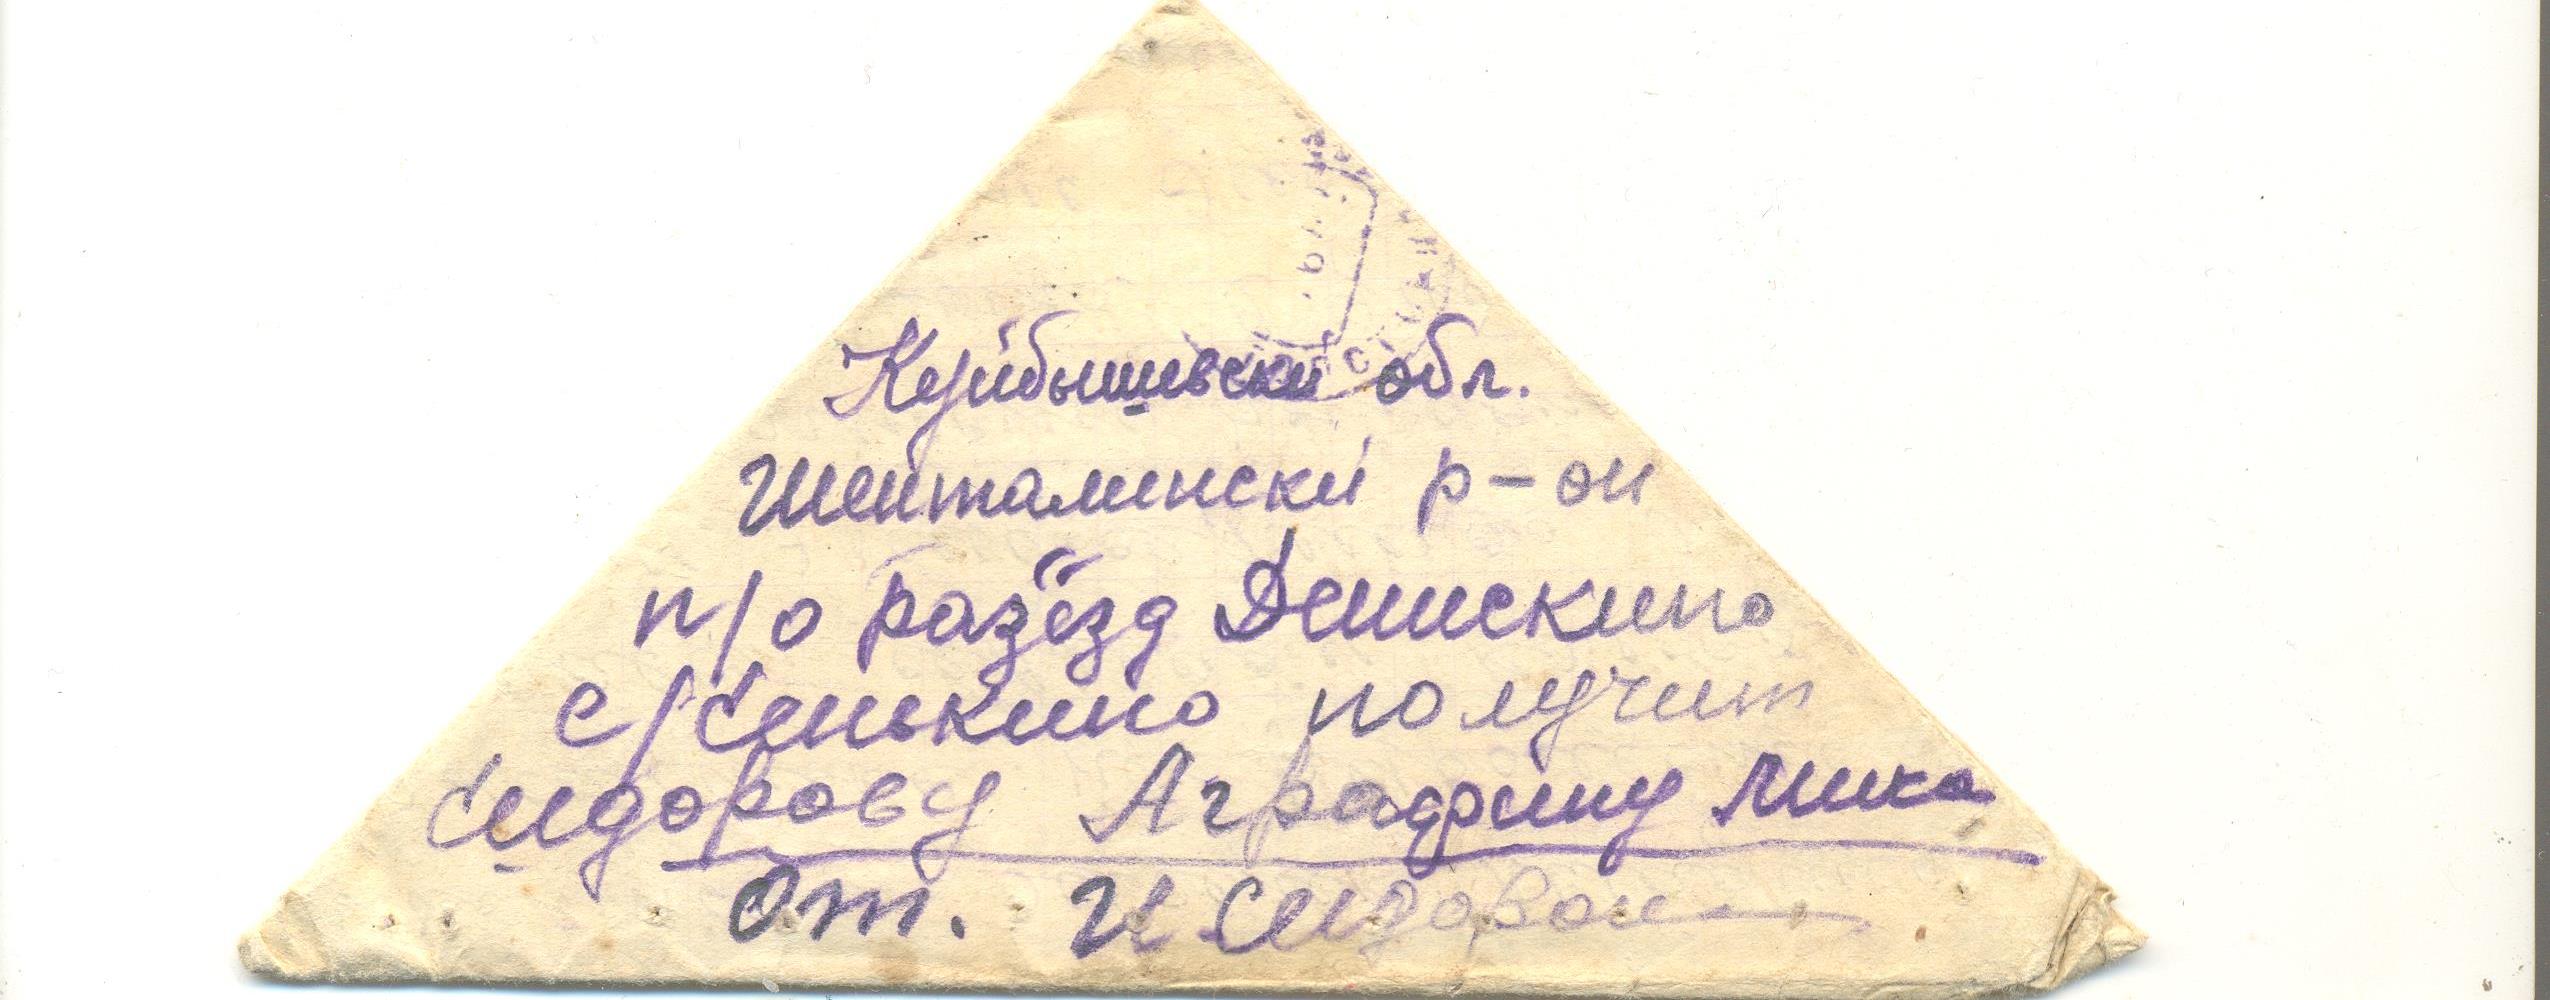 Куйбышевски обл.
Шенталински р-он
п/о разъезд Денискино
с/Сенькино получит
Сидорову Аграфину Миха
От. И Сидорова